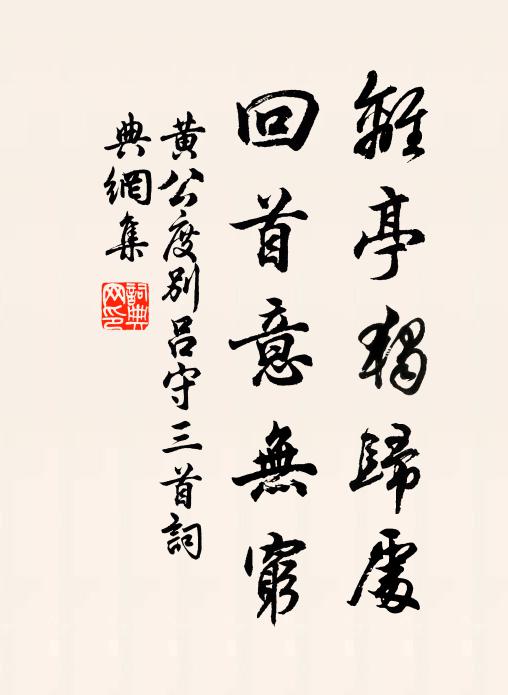 離亭獨歸處
回首意無窮
黃公度別呂守三首詞
典網集
詞典網印